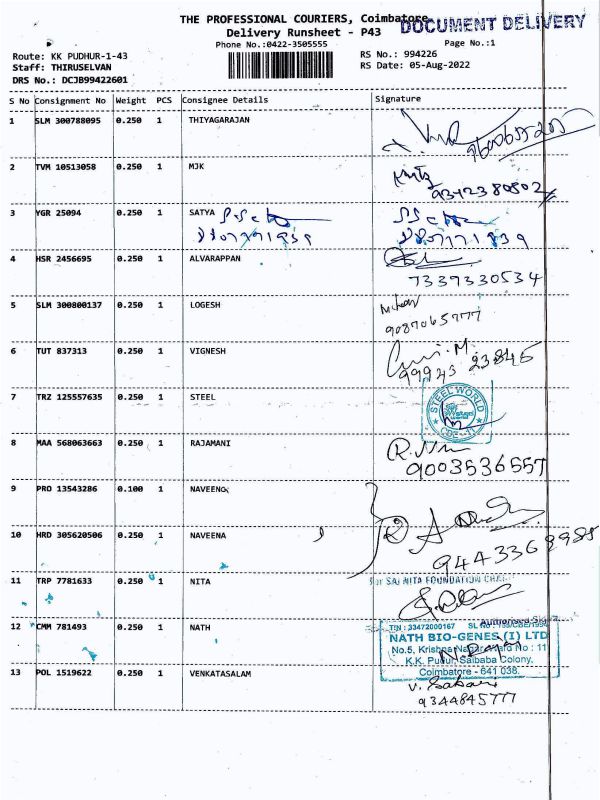 THE PROFESSIONAL COURIERS, Coimbatore
DOCUMENT DELIVERY
Delivery Runsheet - P43
Phone No.:0422-3505555
Page No.:1
Route: KK PUDHUR-1-43
RS No.: 994226
Staff: THIRUSELVAN
RS Date: 05-Aug-2022
DRS No.: DCJB99422601
S No Consignment No Weight PCS Consignee Details Signature
1 SLM 300788095 0.250 1 THIYAGARAJAN
2 TVM 10513058 0.250 1 MJK
9342380802
3 YGR 25094 0.250 1 SATYA
4 HSR 2456695 0.250 1 ALVARAPPAN
7339330534
5 SLM 300800137 0.250 1 LOGESH
9087065777
6 TUT 837313 0.250 1 VIGNESH
99943 23845
7 TRZ 125557635 0.250 1 STEEL
STEEL WORLD
CBE-11
8 MAA 568063663 0.250 1 RAJAMANI
9003536557
9 PRO 13543286 0.100 1 NAVEENG
10 HRD 305620506 0.250 1 NAVEENA
9443368985
11 TRP 7781633 0.250 1 NITA
For SAI NITA FOUNDATION
12 CMM 781493 0.250 1 NATH
TIN : 33472000167
NATH BIO-GENES (I) LTD
No.5, Krishna Nagar, Ward No : 11
K.K. Pudur, Saibaba Colony,
Coimbatore - 641 038.
13 POL 1519622 0.250 1 VENKATASALAM
9344845777